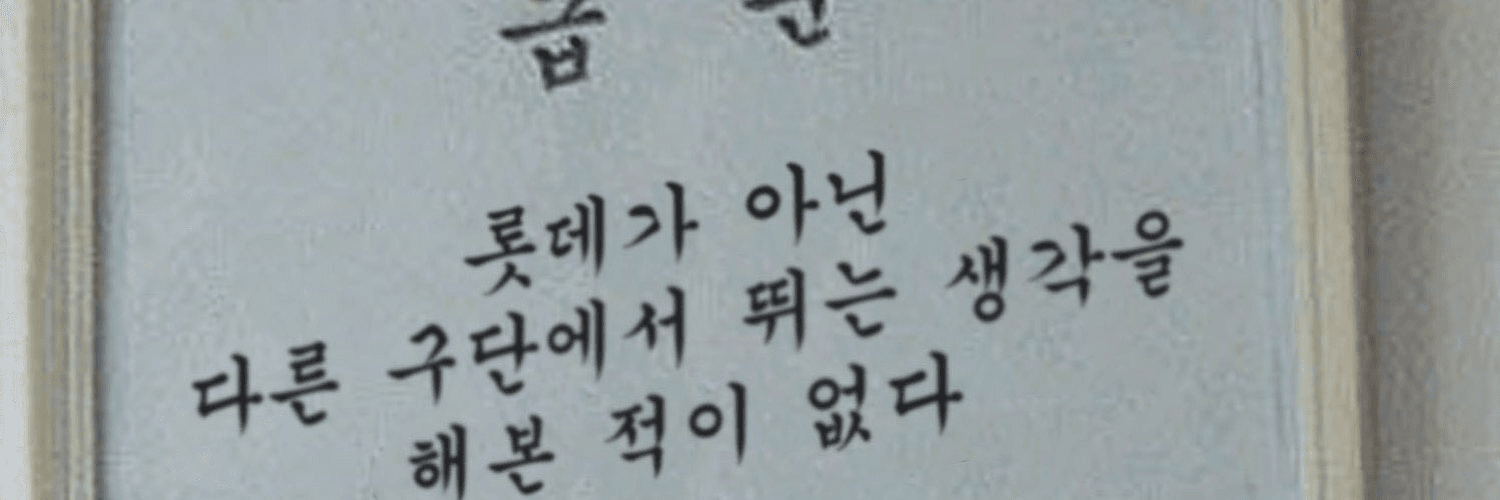 롯데가 아닌
다른 구단에서 뛰는 생각을
해본 적이 없다